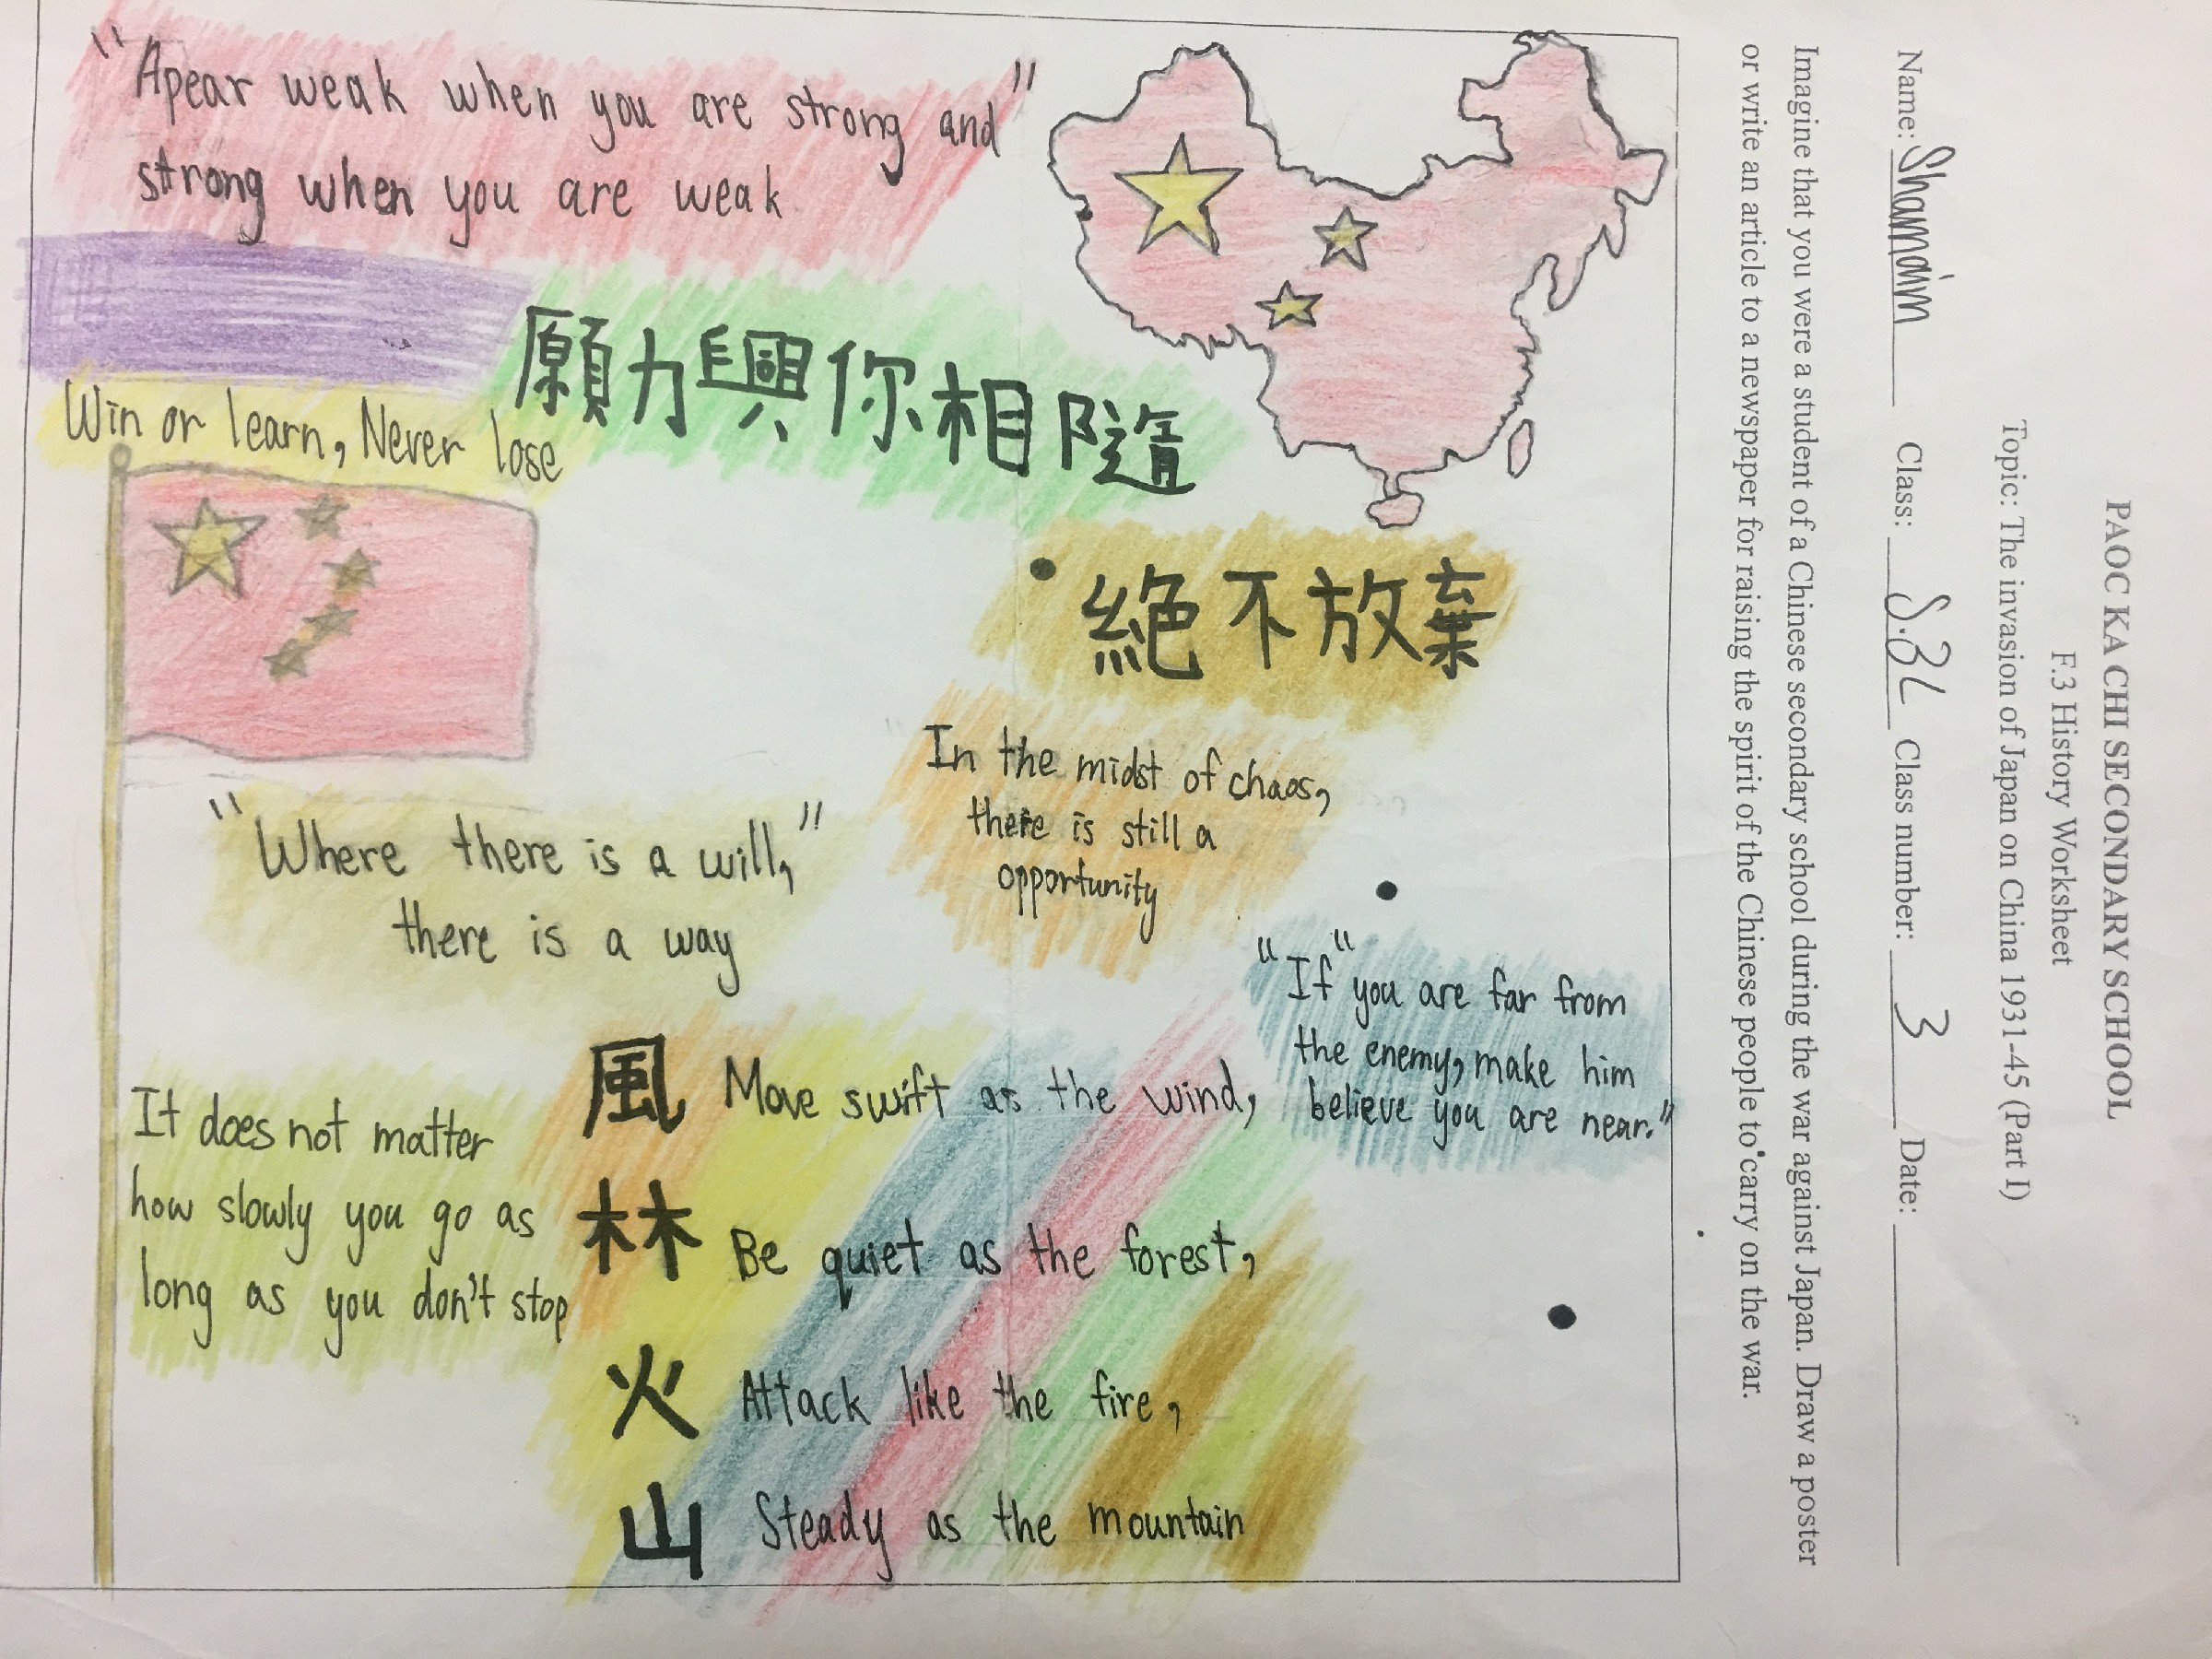 PAOC KA CHI SECONDARY SCHOOL
F.3 History Worksheet
Topic: The invasion of Japan on China 1931-45 (Part I)
Name: Shamaim Class: S.3L Class number: 3 Date:
Imagine that you were a student of a Chinese secondary school during the war against Japan. Draw a poster
or write an article to a newspaper for raising the spirit of the Chinese people to carry on the war.
"Apear weak when you are strong and"
strong when you are weak
願力興你相隨
Win or learn, Never lose
絕不放棄
In the midst of chaos,
there is still a
opportunity
"Where there is a will,"
there is a way
"If" you are far from
the enemy, make him
believe you are near."
It does not matter
how slowly you go as
long as you don't stop
風 Move swift as the wind,
林 Be quiet as the forest,
火 Attack like the fire,
山 Steady as the mountain